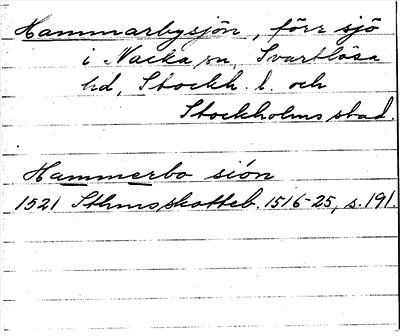 Hammarbysjön, förr sjö
i Nacka sn, Svartlösa
hd, Stockh. l. och
Stockholms stad.
Hammerbo siön
1521 Sthmsskotteb. 1516-25, s. 191.